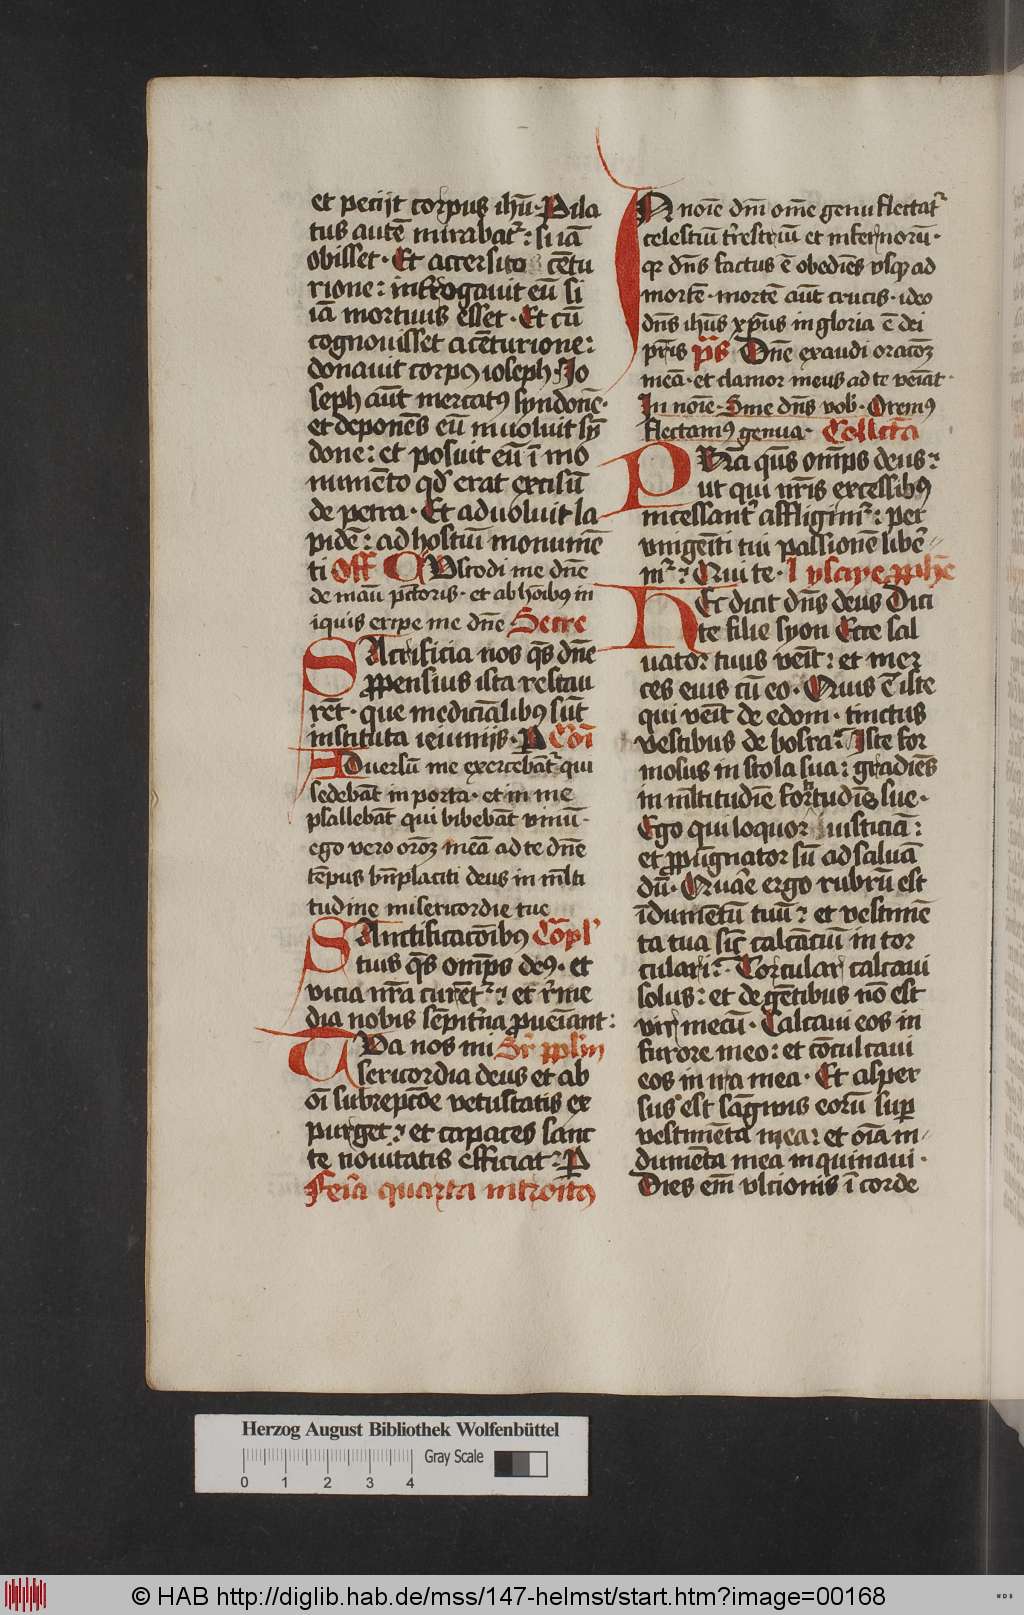 et pecijt corpus ihū · Pila
tus autē mirabat᷑ : si iā
obisset · Et accersito cētu
rione : int̄rogauit eū si
iā mortuus esset · Et cū
cognouisset a cēturione :
donauit corpꝰ ioseph · Jo
seph aūt mercatꝰ syndonē ·
et deponēs eū inuoluit sȳ
done : et posuit eū ī mo
numēto qd̕ erat excisū
de petra · Et aduoluit la
pidē : ad hostiū monumē
ti Off Cvstodi me dn̄e
de manu pc̄toris · et ab hoībꝰ in
iquis eripe me dn̄e Secre
SAcrificia nos q̄s dn̄e
ꝓpensius ista restau
rēt · que medicīalibꝰ sūt
instituta ieiunijs · P Cōi
ADuersū me exercebāt᷑ qui
sedebāt in porta · et in me
psallebāt qui bibebāt vinū ·
ego vero orōꝫ meā ad te dn̄e
tēpus bn̄placiti deus in ml̄ti
tudine misericordie tue
SAnctificacōibꝰ Cōpl̕
tuis q̄s omp̄s deꝰ · et
vicia nr̄a curēt᷑ : et r̄me
dia nobis sēpit̄na ꝓueīant :
TVa nos mi Sr̄ ppl̄m
sericordia deus et ab
oī subrepcōe vetustatis ex
purget : et capaces sanc
te nouitatis efficiat : P
Fer̄ia quarta introitꝰ
IN noīe dn̄i om̄e genu flectat᷑
celestiū t̄restriū et infernorū ·
qꝛ dn̄s factus ē obediēs vsqꝫ ad
mortē · mortē aūt crucis · ideo
dn̄s ihūs xp̄us in gloria ē dei
pr̄is p̄s Dn̄e exaudi oracōꝫ
meā · et clamor meus ad te veīat ·
In noīe · Sine dn̄s vob̕ · Oremꝰ
flectamꝰ genua · Collecta
PRa q̄us omp̄s deus :
ut qui nr̄is excessibꝰ
incessant̕ affligim᷑ : per
vnigeīti tui passionē libe
m᷑ : Qui te · Lyseye ꝓphē
HEc dicit dn̄s deus Dici
te filie syon Ecce sal
uator tuus veīt : et mer
ces eius cū eo · Quis ē iste
qui veīt de edom · tinctus
vestibus de bosra : Iste for
mosus in stola sua : gradiēs
in ml̄titudīe fortudīs sue ·
Ego qui loquor iusticiā :
et ꝓpugnator sū ad saluā
dū · Quare ergo rubrū est
īdumētū tuū : et vestimē
ta tua sic̄ calcāciū in tor
culari : Torcular calcaui
solus : et de gētibus nō est
vir mecū · Calcaui eos in
furore meo : et cōculcaui
eos in ira mea · Et asper
sus est sāgwis eorū suꝑ
vestimēta mea : et oīa in
dumēta mea inquinaui ·
Dies em̄ vlcionis ī corde
Herzog August Bibliothek Wolfenbüttel
Gray Scale
0 1 2 3 4
© HAB http://diglib.hab.de/mss/147-helmst/start.htm?image=00168